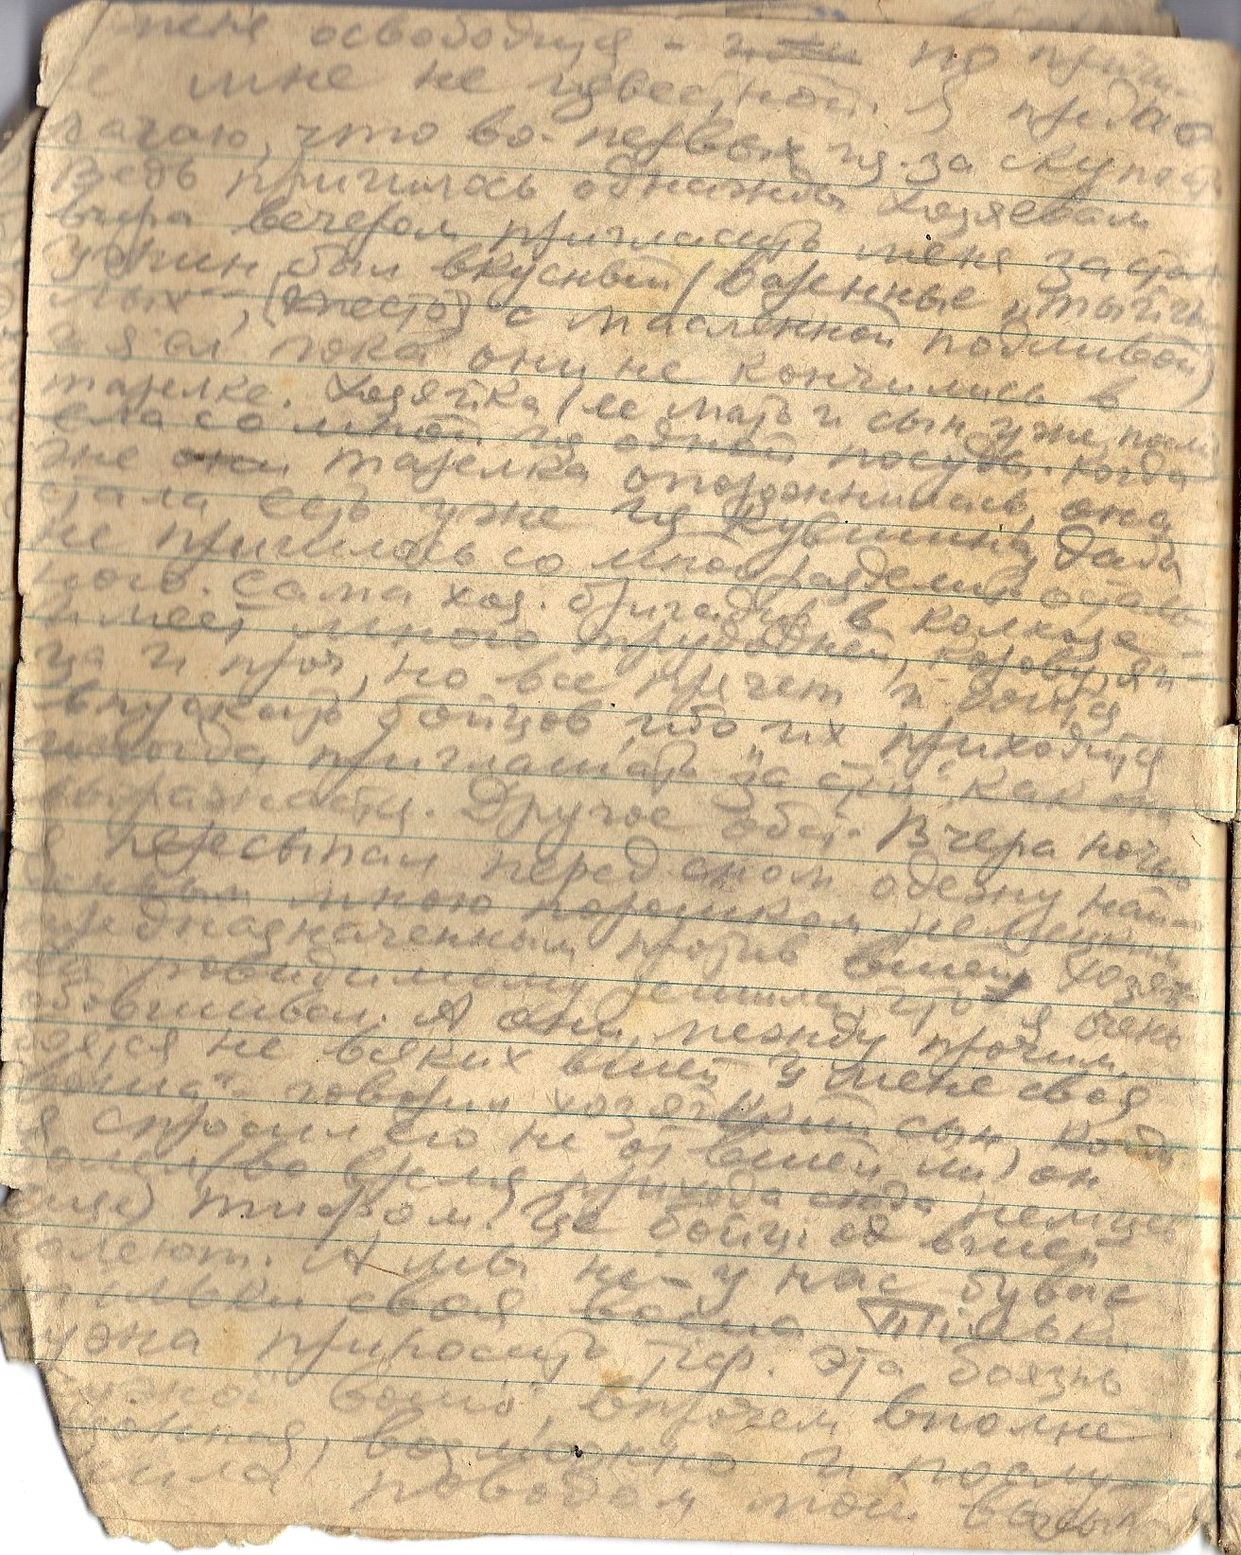 мене освободиця - по причи-
не мне не известной. Я предпо-
лагаю, что во-первых из-за скупости
Ведь пришлось однажды хозяевам
вчера вечером пригласить меня за стол
Ужин был вкусный (варенные
, (тесто) с масленной подливой)
и я ел пока они не кончились в
тарелке. Хозяйка (ее мать и сын ужинали)
ела со мной из одной посуды. Когда
же тарелка опорожнилась, она
стала есть уже из кувшина, дабы
не пришлось со мной разделить остав-
ного. Сама хоз. бригадир в колхозе
имеет много трудодней, корову, яй-
ца и проч, но все причет и боится
впускать бойцов, ибо их приходится
иногда приглашать "за стол", как он
выражается. Другое обст. Вчера ночью
я пересыпал перед сном одежду най-
денным мною порошком немецким
предназначенным против вшей, хозяй-
ка повидимому решила, что я очень
обовшивел. А они, между прочим,
боятся не всяких вшей "У мене своя
воша" говорил хозяйкин сын, когда
я спросил его не от вшей ли) он
болел (во время прихода сюда немцев
еще) тифом. Це бойцi од вшей
болеют. А мы нi - у нас бувае
тiльки своя воша. Тiльки
чужа приросить тиф. Эта боязнь
чужой воши, впрочем вполне
возможно и послу-
жила поводом мой